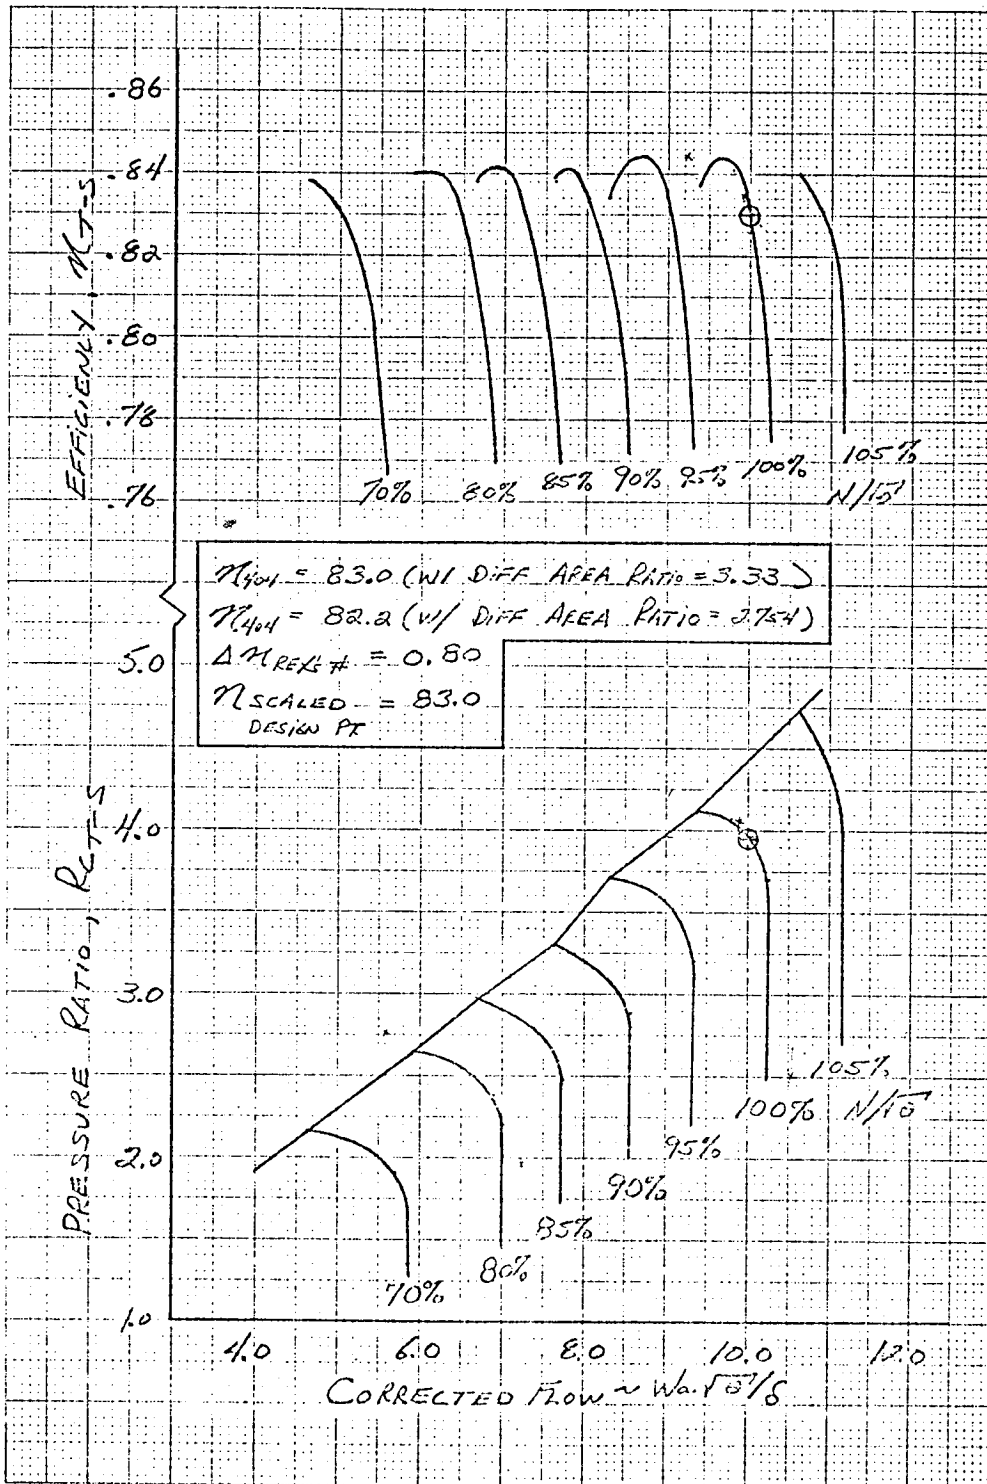 .86
.84
.82
.80
.78
.76
EFFICIENCY, η T-S
70%
80%
85%
90%
95%
100%
105%
N/√θ
η404 = 83.0 (W/ DIFF AREA RATIO = 3.33)
η404 = 82.2 (W/ DIFF AREA RATIO = 2.754)
Δη REY'S # = 0.80
η SCALED = 83.0
DESIGN PT
5.0
4.0
3.0
2.0
1.0
PRESSURE RATIO, Rc T-S
70%
80%
85%
90%
95%
100%
105%
N/√θ
4.0
6.0
8.0
10.0
12.0
CORRECTED FLOW ~ Wa√θ/δ